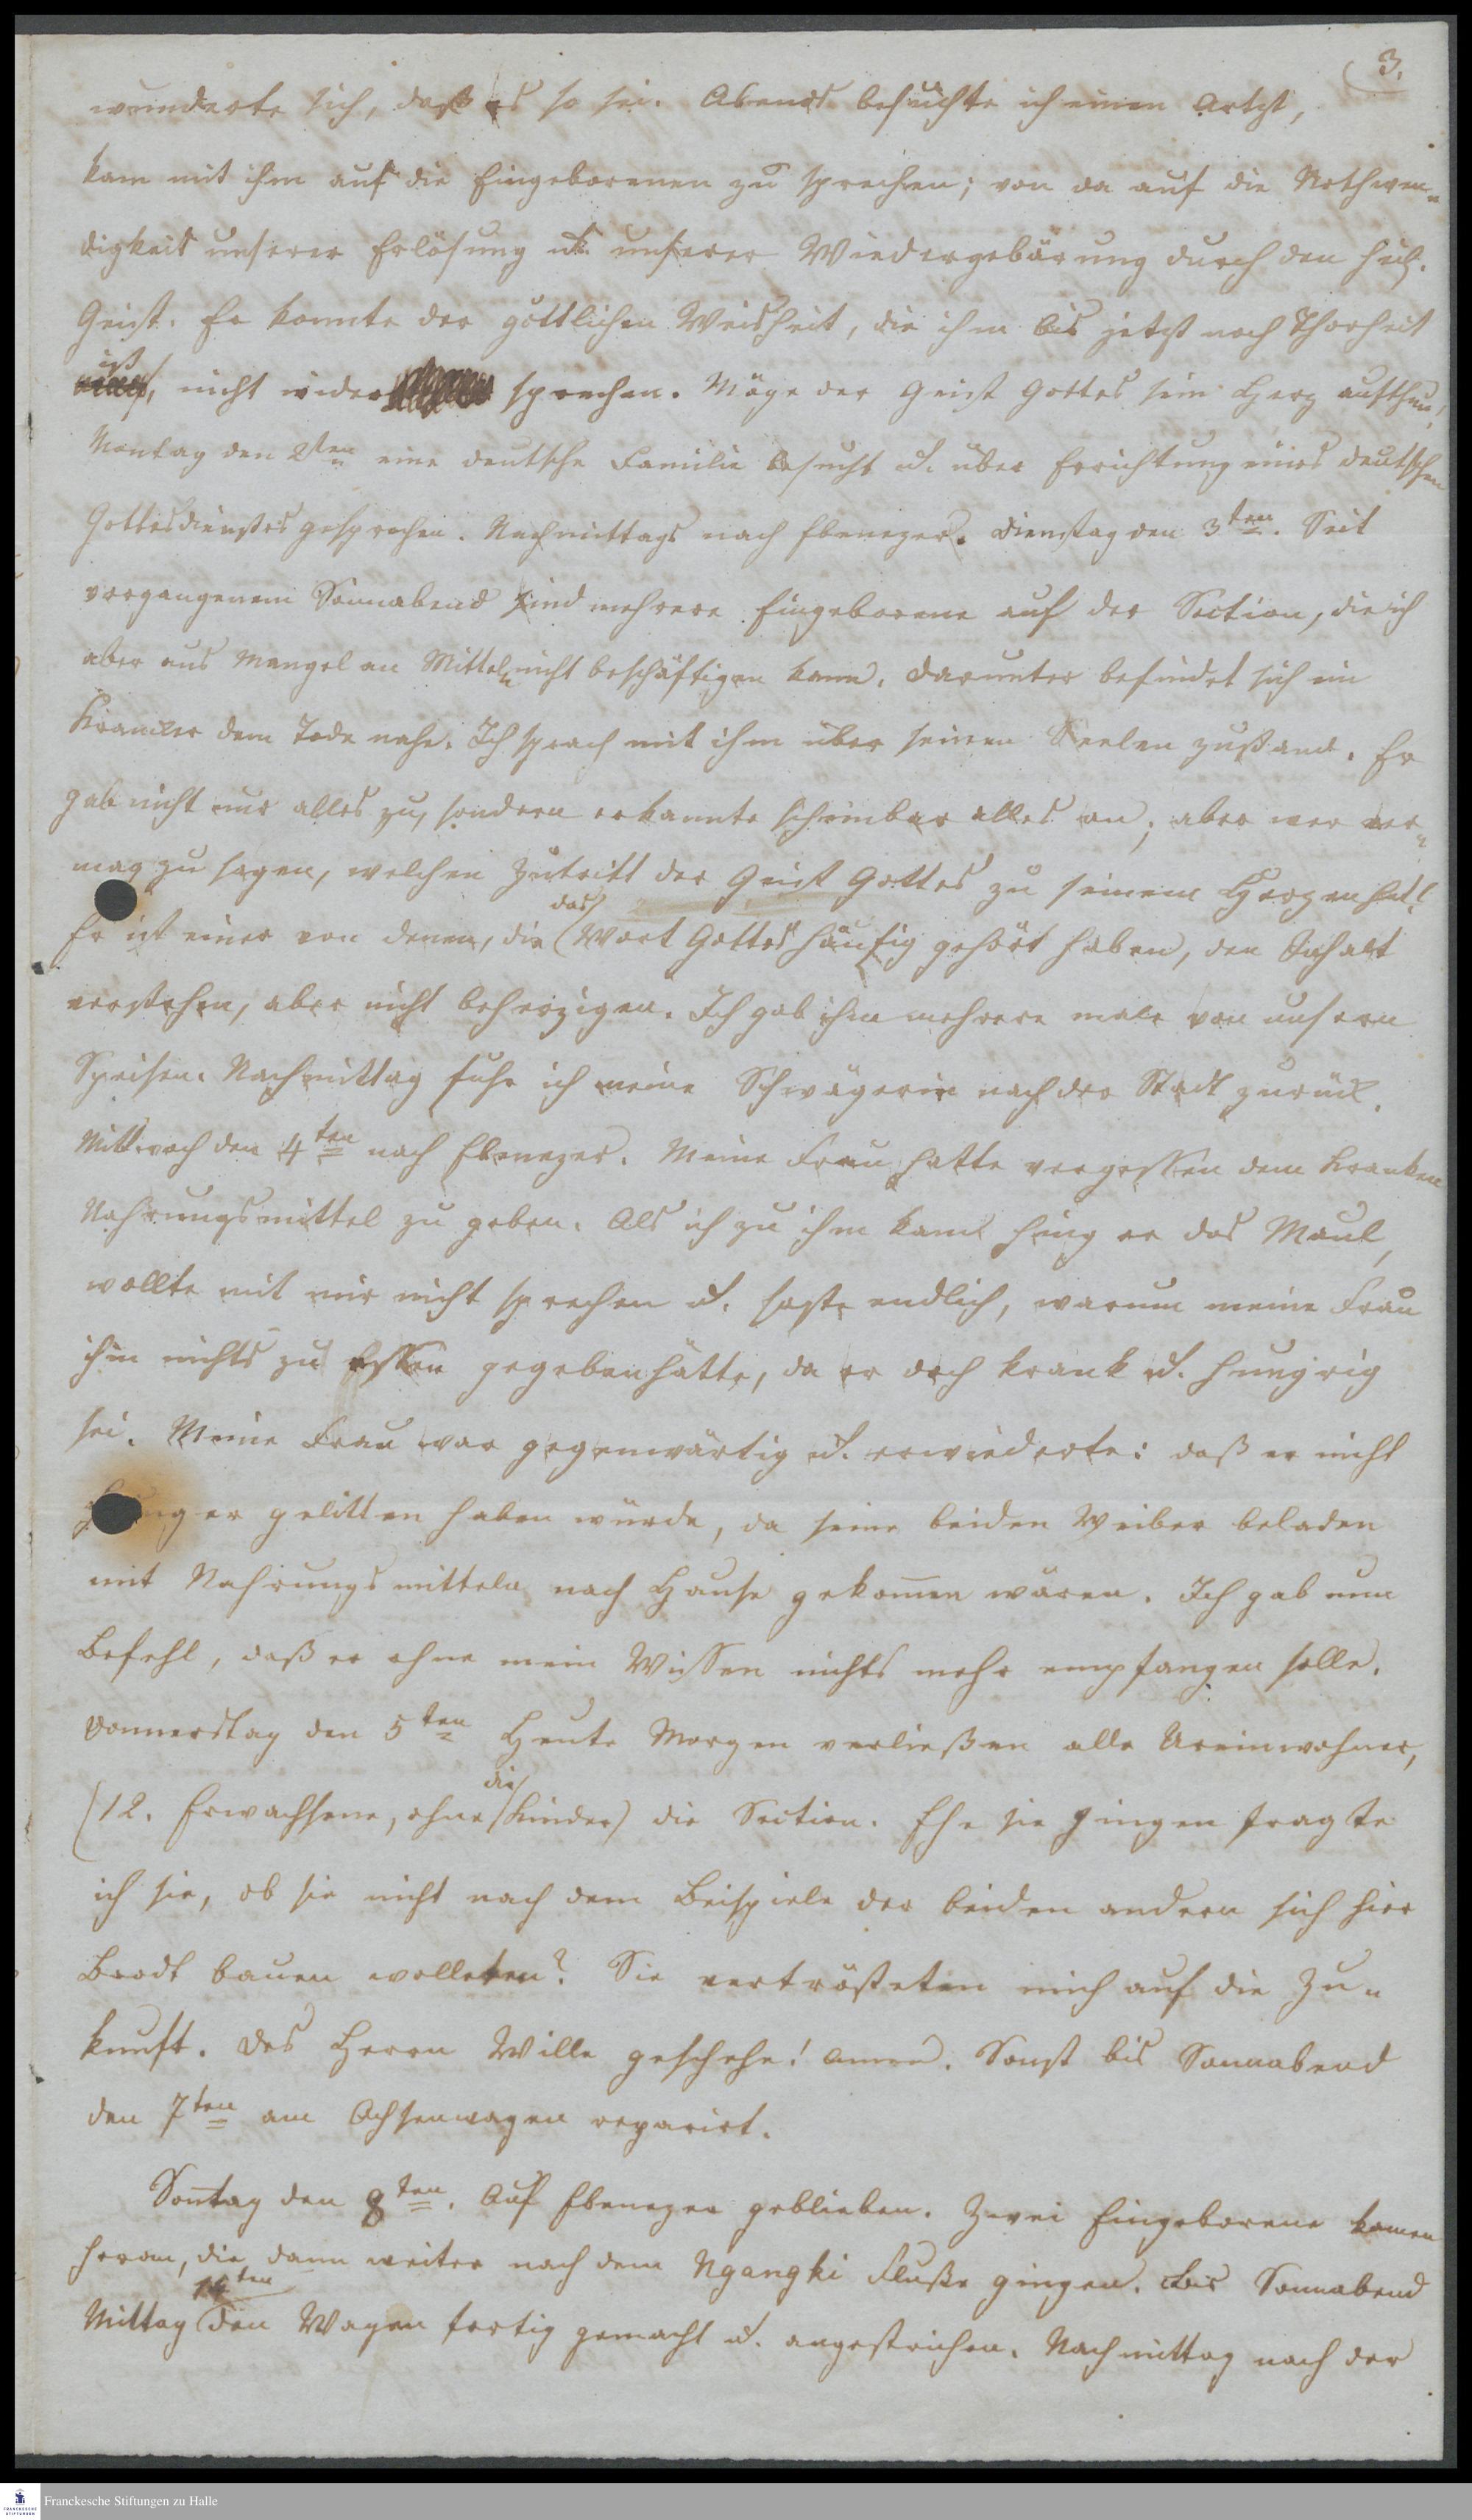 3.
wunderte sich, daß es so sei. Abends besuchte ich einen Artzt,
kam mit ihm auf die Eingeborenen zu sprechen; von da auf die Nothwen-
digkeit unserer Erlösung u. unserer Wiedergebärung durch den heil.
Geist. Er konnte der göttlichen Weisheit, die ihm bis jetzt noch Thorheit
ist, nicht wider sprechen. Möge der Geist Gottes sein Herz aufthun!
Montag den 2ten eine deutsche Familie besucht u. über Errichtung eines deutschen
Gottesdienstes gesprochen. Nachmittags nach Ebenezer. Dienstag den 3ten. Seit
vergangenem Sonnabend sind mehrere Eingeborene auf der Section, die ich
aber aus Mangel an Mitteln nicht beschäftigen kann. Darunter befindet sich ein
Kranker dem Tode nahe. Ich sprach mit ihm über seinen Seelen zustand. Er
gab nicht nur alles zu, sondern erkannte scheinbar alles an; aber wer ver-
mag zu sagen, welchen Zutritt der Geist Gottes zu seinem Herzen hat!
Er ist einer von denen, die das Wort Gottes häufig gehört haben, den Inhalt
verstehen, aber nicht beherzigen. Ich gab ihm mehrere male von unsern
Speisen. Nachmittag fuhr ich meine Schwägerin nach der Stadt zurück.
Mittwoch den 4ten nach Ebenezer. Meine Frau hatte vergessen dem Kranken
Nahrungsmittel zu geben. Als ich zu ihm kam hing er das Maul,
wollte mit mir nicht sprechen u. sagte endlich, warum meine Frau
ihm nichts zu Essen gegeben hätte, da er doch krank u. hungrig
sei. Meine Frau war gegenwärtig u. erwiederte: daß er nicht
Hunger gelitten haben würde, da seine beiden Weiber beladen
mit Nahrungsmitteln nach Hause gekom̅en wären. Ich gab nun
Befehl, daß er ohne mein Wissen nichts mehr empfangen solle.
Donnerstag den 5ten Heute Morgen verließen alle Ureinwohner,
(12. Erwachsene, ohne die Kinder) die Section. Ehe sie gingen fragte
ich sie, ob sie nicht nach dem Beispiele der beiden andern sich hier
Brodt bauen wollten? Sie vertrösteten mich auf die Zu-
kunft. Des Herrn Wille geschehe! Amen. Sonst bis Sonnabend
den 7ten am Ochsenwagen reparirt.
Son̅tag den 8ten. Auf Ebenezer geblieben. Zwei Eingeborene kamen
heran, die dann weiter nach dem Ngangki Fluße gingen. Bis Sonnabend
Mittag 14ten den Wagen fertig gemacht u. angestrichen. Nachmittag nach der
Franckesche Stiftungen zu Halle